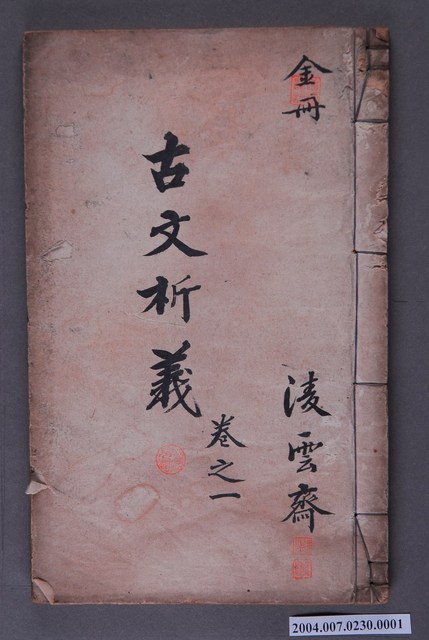 金冊
古文析義
卷之一
淩雲齋
2004.007.0230.0001